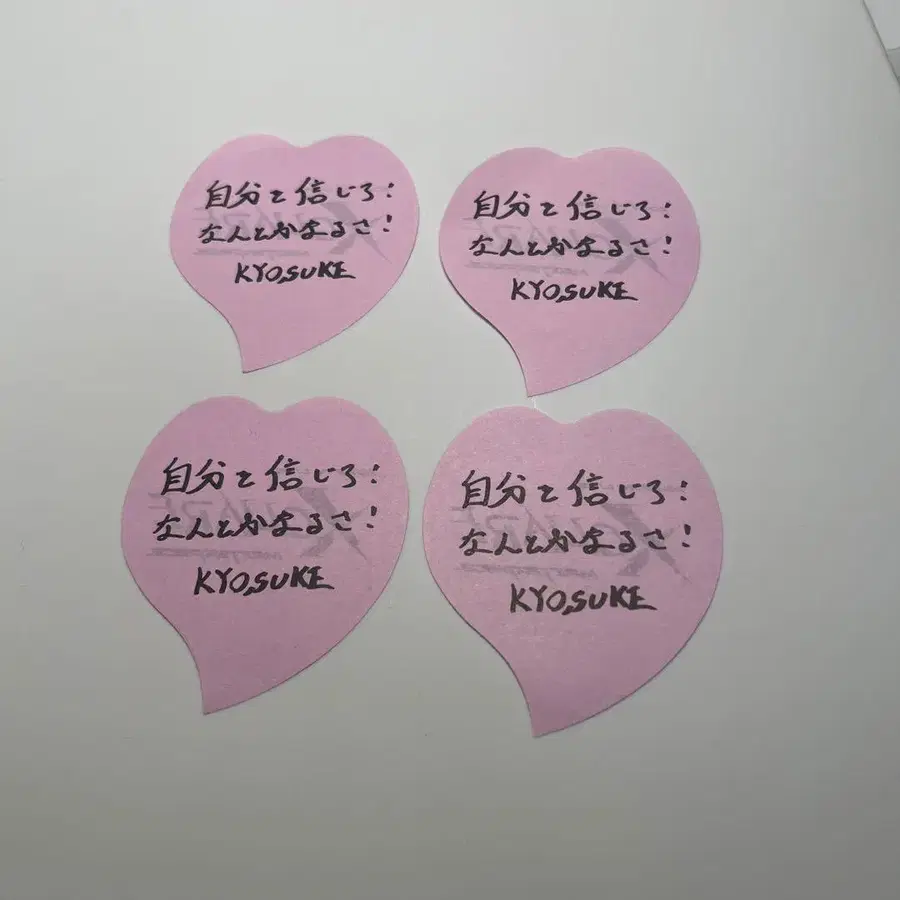 自分を信じろ!
なんとかなるさ!
KYOSUKE
自分を信じろ!
なんとかなるさ!
KYOSUKE
自分を信じろ!
なんとかなるさ!
KYOSUKE
自分を信じろ!
なんとかなるさ!
KYOSUKE